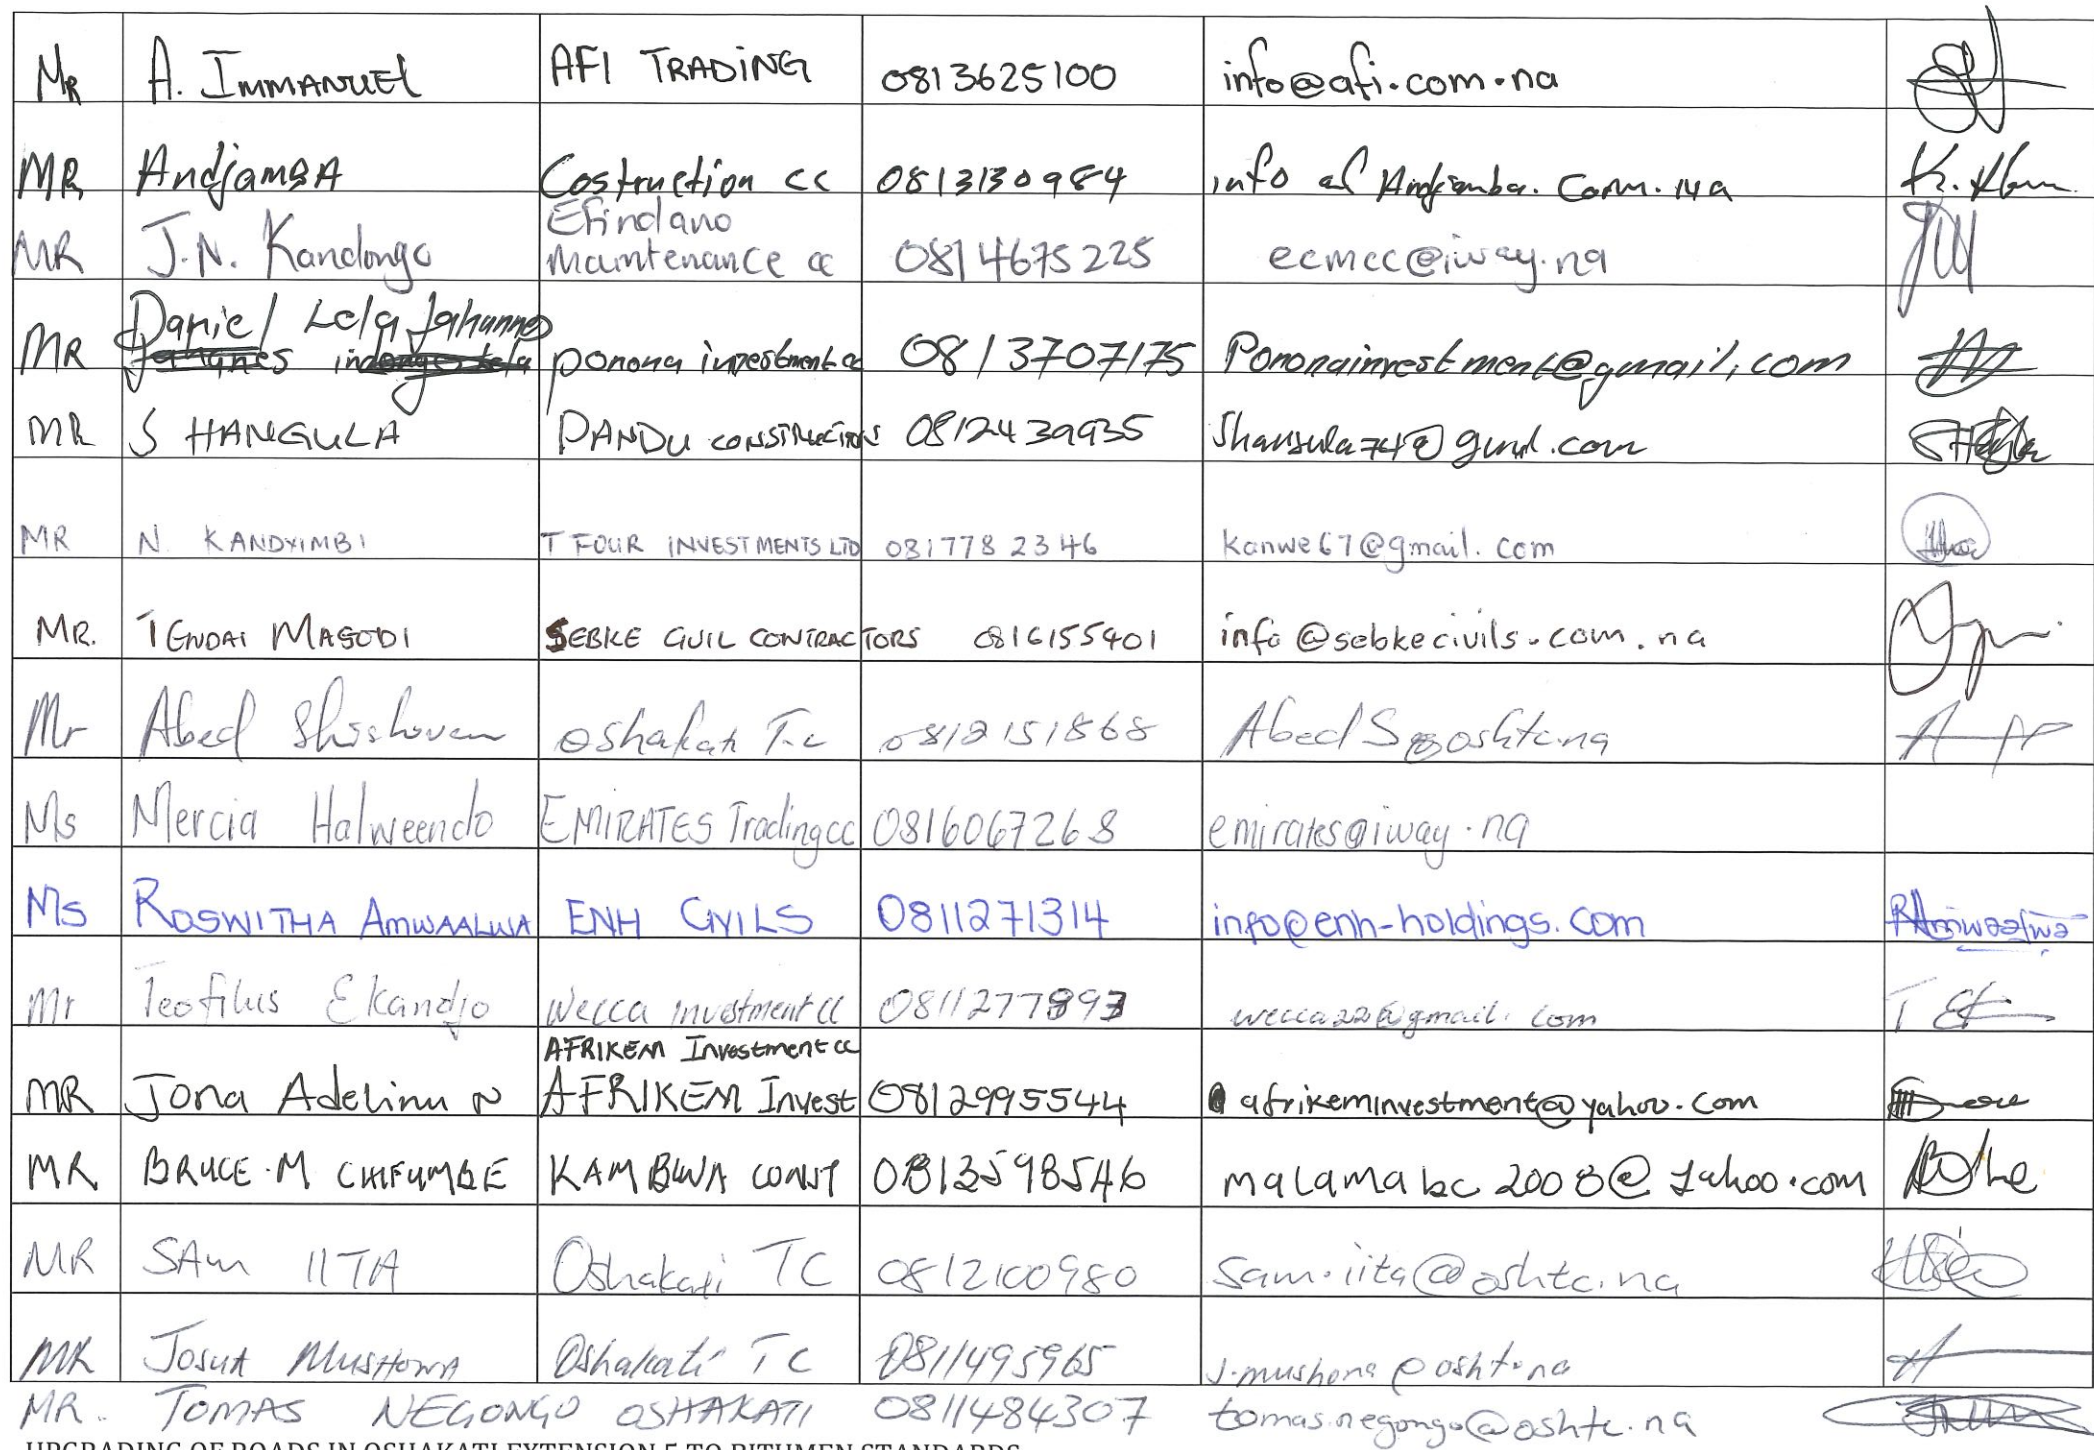 Mr A. IMMANUEL AFI TRADING 0813625100 info@afi.com.na
MR AndjamBA Costruction cc 0813130984 info at Andjamba. Com. na
MR J.N. Kandongo Efindano Maintenance cc 0814675225 ecmcc@iway.na
MR Daniel Lela Johannes ponona investment cc 0813707175 Pononainvestment@gmail.com
MR S HANGULA PANDU CONSTRUCTION 0812439935 Shangula74@gmail.com
MR N. KANDYIMBI T FOUR INVESTMENTS LTD 081778 2346 kanwe67@gmail.com
MR. TENDAI MAGODI SEBKE CIVIL CONTRACTORS 0816155401 info@sebkecivils.com.na
Mr Abed Oshakati T.c 0812151868
Ms Mercia Halweendo EMIRATES Trading cc 0816067268 emirates@iway.na
Ms ROSWITHA AMWAALWA ENH CIVILS 0811271314 info@enh-holdings.com
Mr Teofilus Ekandjo Wecca investment cc wecca22@gmail.com
AFRIKEM Investment cc
MR Jona N AFRIKEM Invest 0812995544 afrikeminvestment@yahoo.com
MR BRUCE.M CHIFUMBE KAMBWA CONST 0813598546 malamabc2008@yahoo.com
MR SAm IITA Oshakati TC 0812100980 sam.iita@oshtc.na
MR Oshakati TC 0811495965
MR. TOMAS NEGONGO OSHAKATI 0811484307 tomas.negongo@oshtc.na
UPGRADING OF ROADS IN OSHAKATI EXTENSION 5 TO BITUMEN STANDARDS